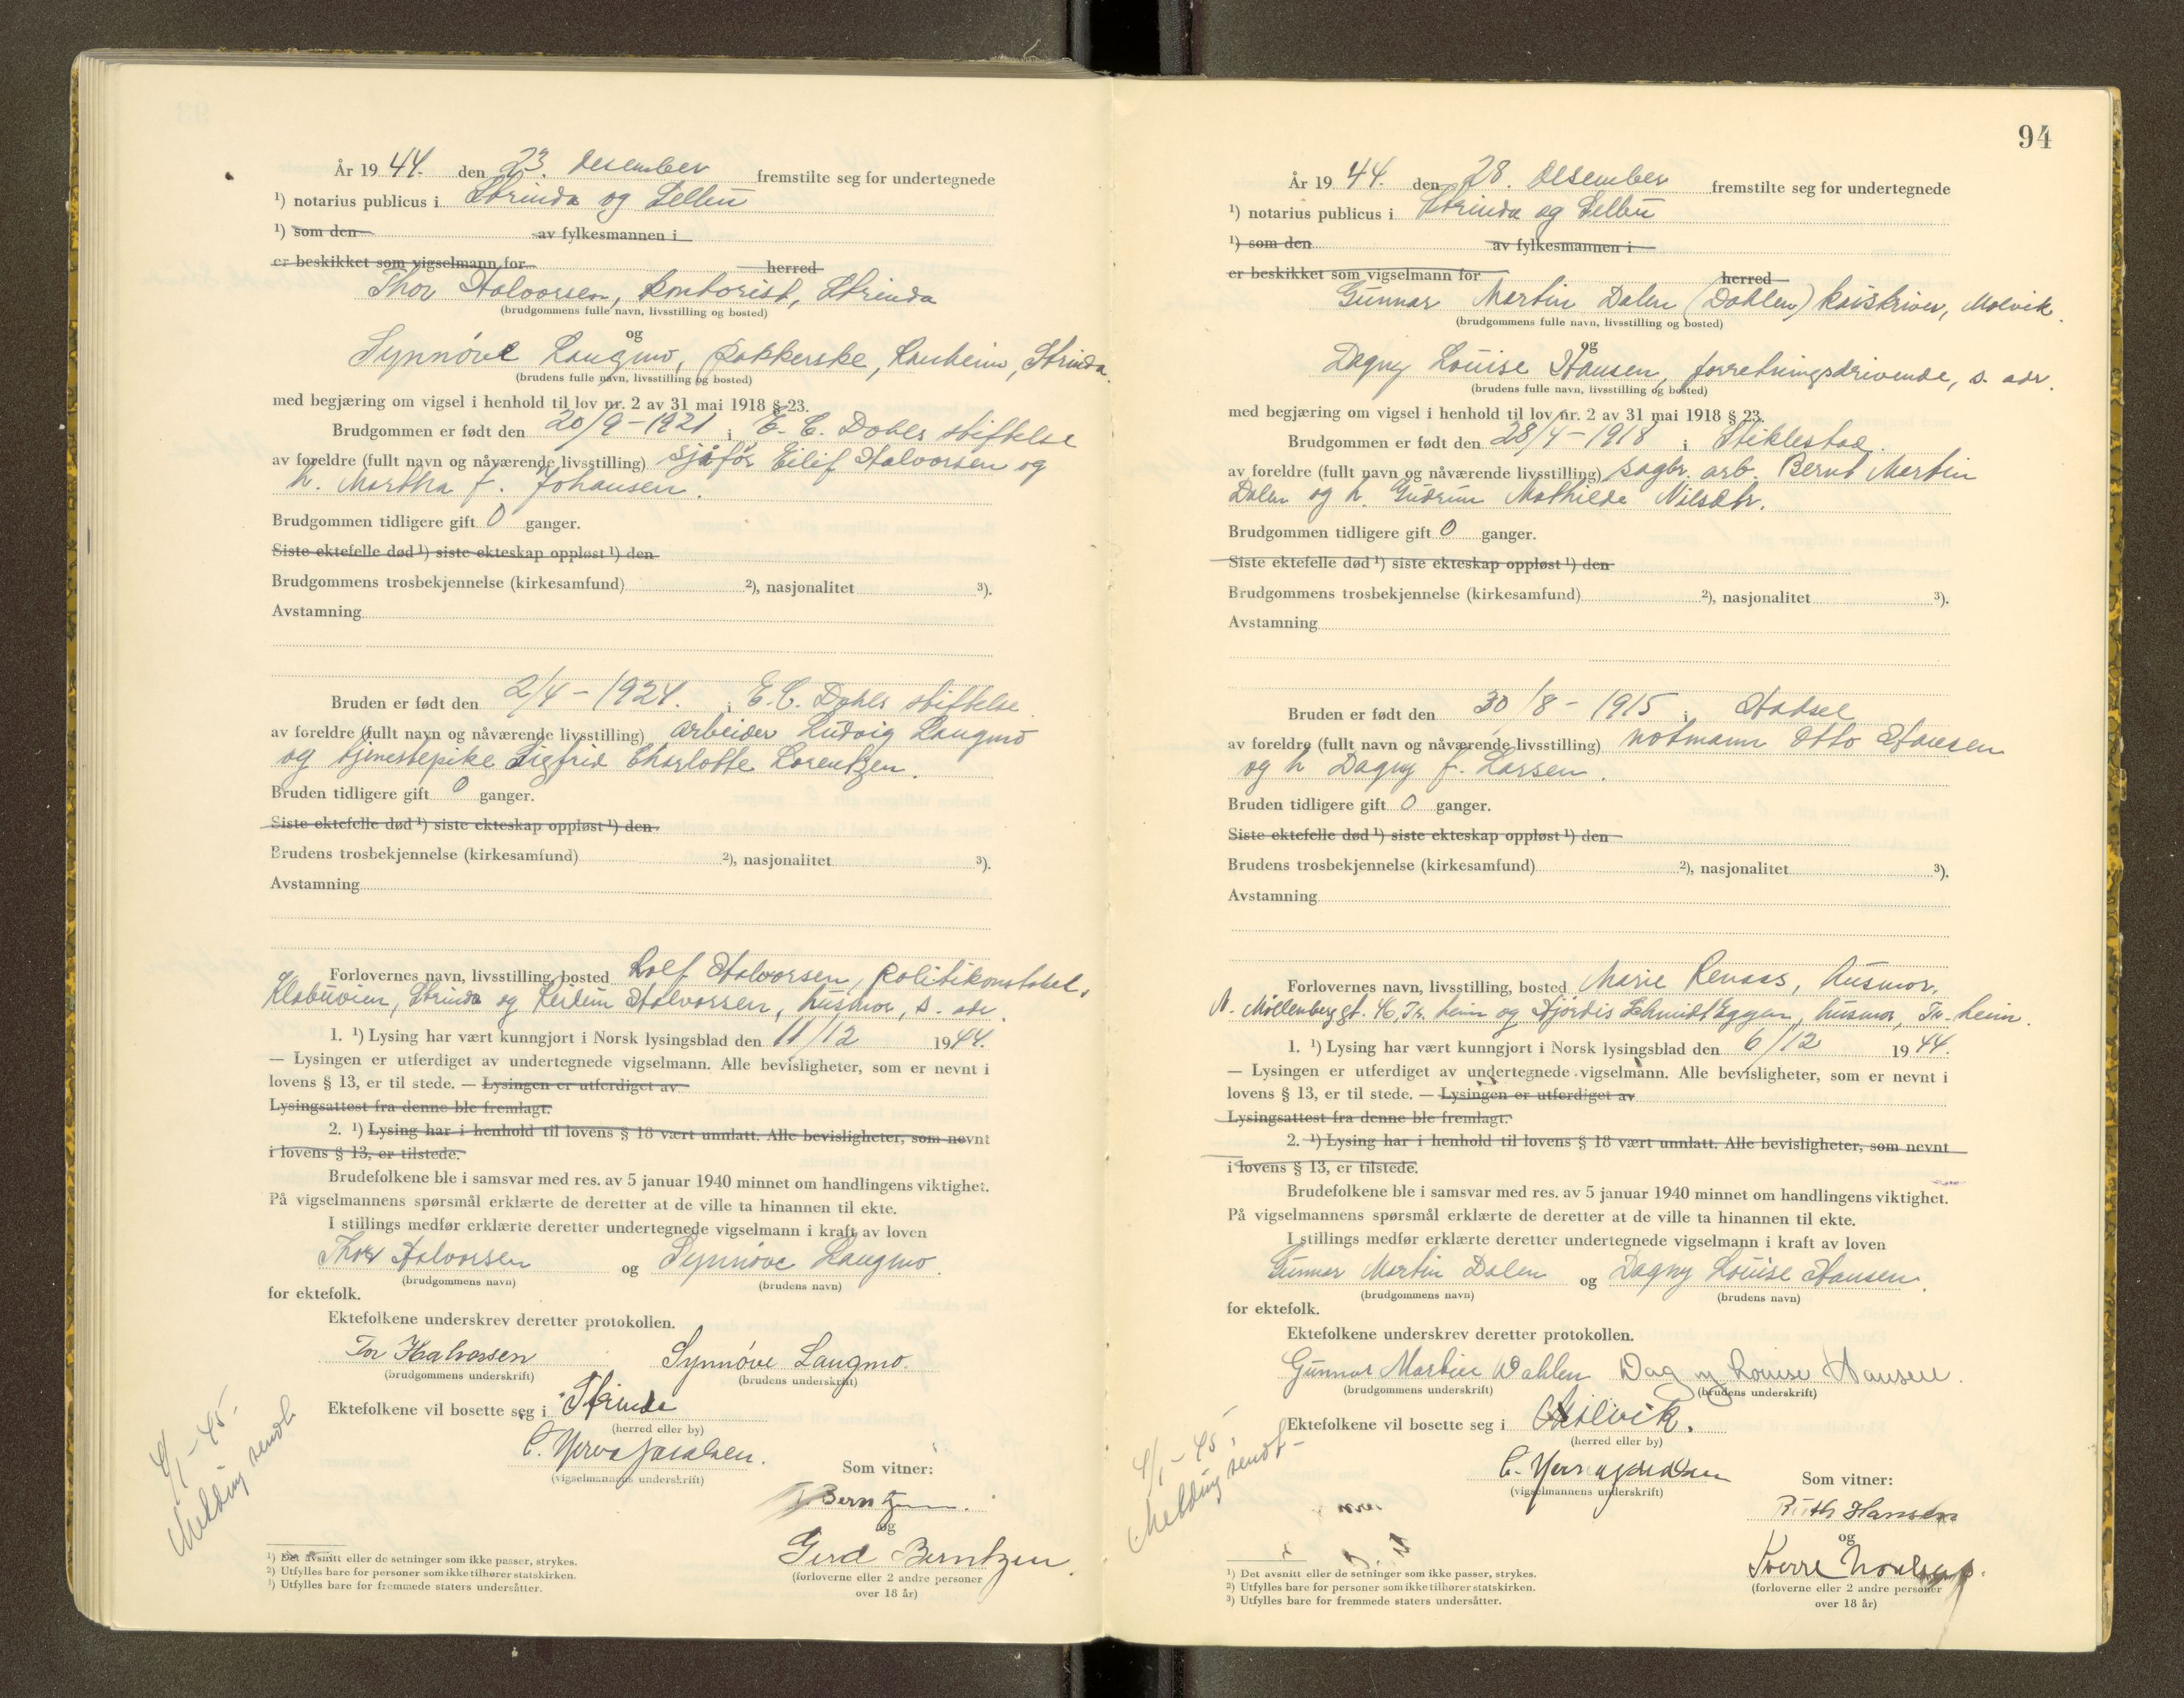 År 1944. den 23. desember fremstilte seg for undertegnede
¹) notarius publicus i Strinda og Selbu
¹) som den av fylkesmannen i
er beskikket som vigselmann for herred
Thor Halvorsen, kontorist, Strinda
(brudgommens fulle navn, livsstilling og bosted)
og
Synnöve Langmo, pakkerske, Ranheim, Strinda.
(brudens fulle navn, livsstilling og bosted)
med begjæring om vigsel i henhold til lov nr. 2 av 31 mai 1918 § 23.
Brudgommen er født den 20/9-1921 i E. C. Dahls stiftelse
av foreldre (fullt navn og nåværende livsstilling) sjåfør Eilif Halvorsen og
h. Martha f. Johansen.
Brudgommen tidligere gift 0 ganger.
Siste ektefelle død ¹) siste ekteskap oppløst ¹) den
Brudgommens trosbekjennelse (kirkesamfund) ²), nasjonalitet ³).
Avstamning
Bruden er født den 2/4-1924. i E.C. Dahls stiftelse
av foreldre (fullt navn og nåværende livsstilling) arbeider Ludvig Langmo
og tjenestepike Sigfrid Charlotte Lorentzen.
Bruden tidligere gift 0 ganger.
Siste ektefelle død ¹) siste ekteskap oppløst ¹) den
Brudens trosbekjennelse (kirkesamfund) ²), nasjonalitet ³).
Avstamning
Forlovernes navn, livsstilling, bosted Rolf Halvorsen, politikonstabel,
Klæbuveien, Strinda og Halvorsen, husmor, s. adr.
1. ¹) Lysing har vært kunngjort i Norsk lysingsblad den 11/12 1944.
— Lysingen er utferdiget av undertegnede vigselmann. Alle bevisligheter, som er nevnt i
lovens § 13, er til stede. — Lysingen er utferdiget av
Lysingsattest fra denne ble fremlagt.
2. ¹) Lysing har i henhold til lovens § 18 vært unnlatt. Alle bevisligheter, som nevnt
i lovens § 13, er tilstede.
Brudefolkene ble i samsvar med res. av 5 januar 1940 minnet om handlingens viktighet.
På vigselmannens spørsmål erklærte de deretter at de ville ta hinannen til ekte.
I stillings medfør erklærte deretter undertegnede vigselmann i kraft av loven
Thor Halvorsen og Synnöve Langmo.
(brudgommens navn) (brudens navn)
for ektefolk.
Ektefolkene underskrev deretter protokollen.
Tor Halvorsen Synnöve Langmo.
(brudgommens underskrift) (brudens underskrift)
Ektefolkene vil bosette seg i Strinda
(herred eller by)
(vigselmannens underskrift)
Som vitner:
Berntzen.
og
Gerd Berntzen.
(forloverne eller 2 andre personer
over 18 år)
4/1-45.
Melding sendt
¹) Det avsnitt eller de setninger som ikke passer, strykes.
²) Utfylles bare for personer som ikke tilhører statskirken.
³) Utfylles bare for fremmede staters undersåtter.
94
År 1944. den 28. desember fremstilte seg for undertegnede
¹) notarius publicus i Strinda og Selbu
¹) som den av fylkesmannen i
er beskikket som vigselmann for herred
Gunnar Martin Dalen (Dahlen) kaiskriver, Malvik.
(brudgommens fulle navn, livsstilling og bosted)
og
Dagny Louise Hansen, forretningsdrivende, s. adr.
(brudens fulle navn, livsstilling og bosted)
med begjæring om vigsel i henhold til lov nr. 2 av 31 mai 1918 § 23.
Brudgommen er født den 28/4-1918 i Stiklestad.
av foreldre (fullt navn og nåværende livsstilling) sagbr. arb. Bernt Martin
Dalen og h. Gudrun Mathilde Nilsdtr.
Brudgommen tidligere gift 0 ganger.
Siste ektefelle død ¹) siste ekteskap oppløst ¹) den
Brudgommens trosbekjennelse (kirkesamfund) ²), nasjonalitet ³).
Avstamning
Bruden er født den 30/8-1915 i Hadsel
av foreldre (fullt navn og nåværende livsstilling) notmann Otto Hansen
og h Dagny f. Larsen.
Bruden tidligere gift 0 ganger.
Siste ektefelle død ¹) siste ekteskap oppløst ¹) den
Brudens trosbekjennelse (kirkesamfund) ²), nasjonalitet ³).
Avstamning
Forlovernes navn, livsstilling, bosted Marie Renaas, husmor,
N. Møllenberg gt. 46, Tr. heim og Hjördis Schmidt Eggen, husmor, Tr. heim.
1. ¹) Lysing har vært kunngjort i Norsk lysingsblad den 6/12 1944.
— Lysingen er utferdiget av undertegnede vigselmann. Alle bevisligheter, som er nevnt i
lovens § 13, er til stede. — Lysingen er utferdiget av
Lysingsattest fra denne ble fremlagt.
2. ¹) Lysing har i henhold til lovens § 18 vært unnlatt. Alle bevisligheter, som nevnt
i lovens § 13, er tilstede.
Brudefolkene ble i samsvar med res. av 5 januar 1940 minnet om handlingens viktighet.
På vigselmannens spørsmål erklærte de deretter at de ville ta hinannen til ekte.
I stillings medfør erklærte deretter undertegnede vigselmann i kraft av loven
Gunnar Martin Dalen og Dagny Louise Hansen.
(brudgommens navn) (brudens navn)
for ektefolk.
Ektefolkene underskrev deretter protokollen.
Gunnar Martin Dahlen Dagny Louise Hansen.
(brudgommens underskrift) (brudens underskrift)
Ektefolkene vil bosette seg i Malvik.
(herred eller by)
(vigselmannens underskrift)
Som vitner:
Ruth Hansen
og
Sverre
(forloverne eller 2 andre personer
over 18 år)
4/1-45.
Melding sendt
¹) Det avsnitt eller de setninger som ikke passer, strykes.
²) Utfylles bare for personer som ikke tilhører statskirken.
³) Utfylles bare for fremmede staters undersåtter.